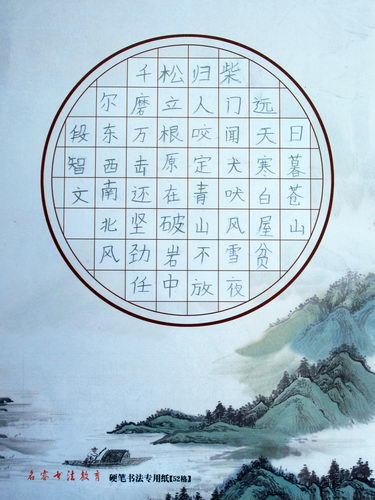 日暮苍山
远天寒白屋贫
柴门闻犬吠风雪夜
归人咬定青山不放
松立根原在破岩中
千磨万击还坚劲任
尔东西南北风
段智文
名睿书法教育 硬笔书法专用纸【52格】